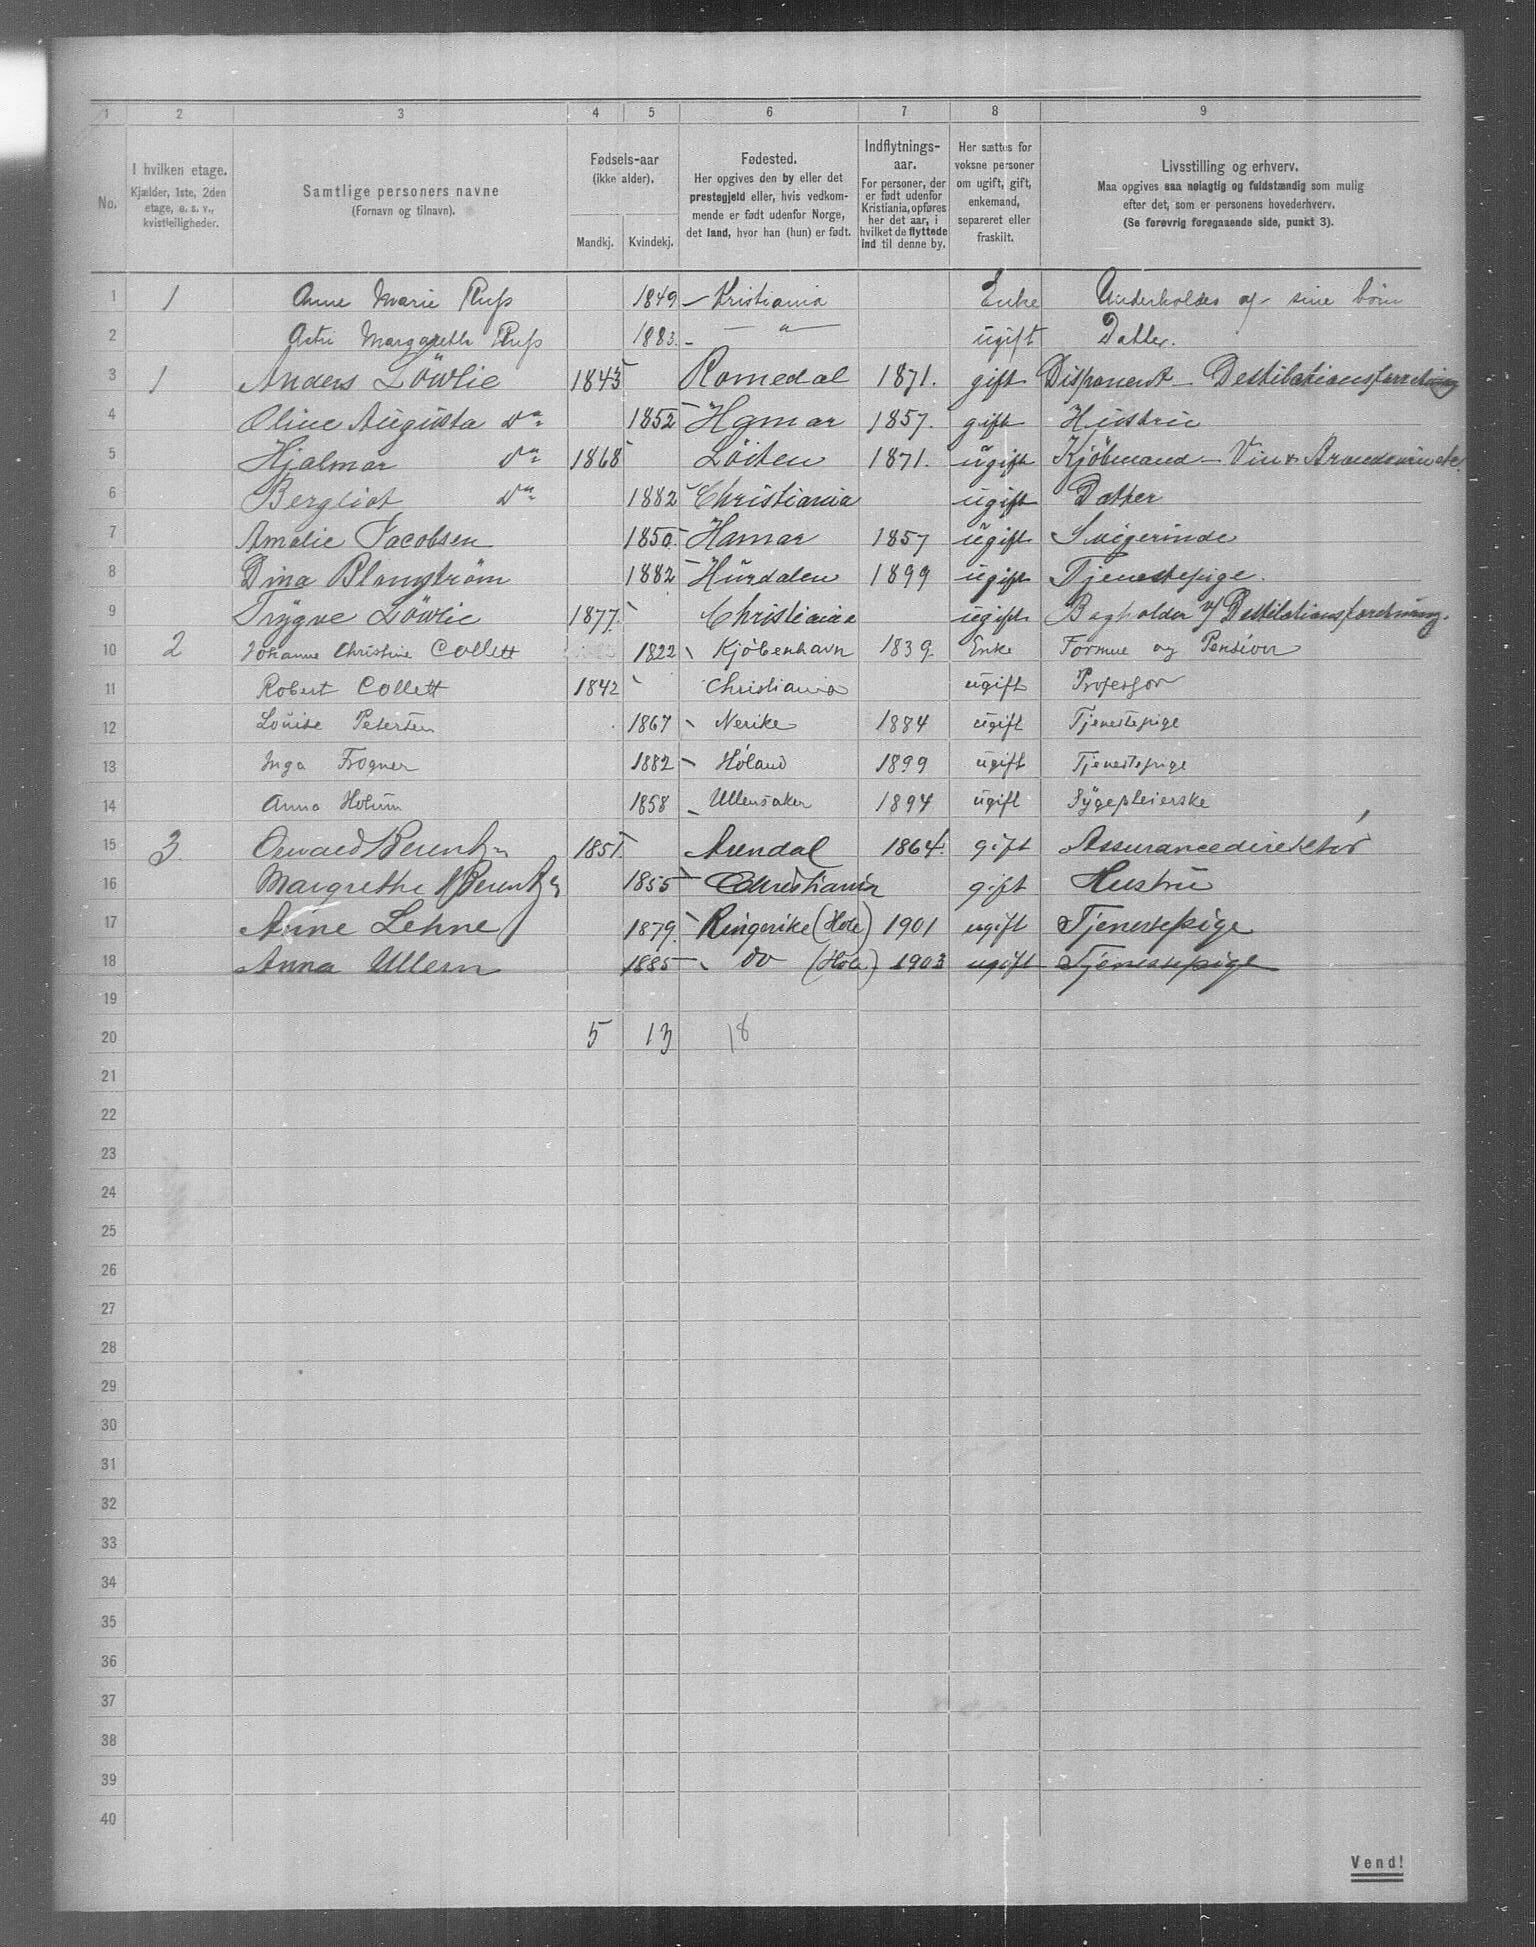 1 2 3 4 5 6 7 8 9
No. I hvilken etage. Kjælder, 1ste, 2den etage, o. s. v., kvistleiligheder. Samtlige personers navne (Fornavn og tilnavn). Fødsels-aar (ikke alder). Mandkj. Kvindekj. Fødested. Her opgives den by eller det prestegjeld eller, hvis vedkommende er født udenfor Norge, det land, hvor han (hun) er født. Indflytnings-aar. For personer, der er født udenfor Kristiania, opføres her det aar, i hvilket de flyttede ind til denne by. Her sættes for voksne personer om ugift, gift, enkemand, separeret eller fraskilt. Livsstilling og erhverv. Maa opgives saa nøiagtig og fuldstændig som mulig efter det, som er personens hovederhverv. (Se forøvrig foregaaende side, punkt 3).
1 1 Anne Marie Russ 1849 – Kristiania Enke Underholdes af sine børn
2 Astri Margarethe Russ 1883 – — " — ugift Datter.
3 1 Anders Löwlie 1843 Romedal 1871. gift Disponent – Destilationsforretning
4 Oline Augusta do 1852 Hamar 1857. gift Hustru
5 Hjalmar do 1868 Löiten 1871. ugift Kjöbmand – Vin &
6 Bergliot do 1882 Christiania ugift Datter
7 Amalie Jacobsen 1850. Hamar 1857 ugift Svigerinde
8 Dina Blomström 1882 Hurdalen 1899 ugift Tjenestepige.
9 Trygve Löwlie 1877. Christiania ugift Bogholder v/ Destilationsforretning.
10 2 Johanne Christine Collett 1822 Kjöbenhavn 1839 Enke Formue og Pension
11 Robert Collett 1842 Christiania ugift Professor
12 Louise Petersen 1867 Nerike 1884 ugift Tjenestepige
13 Inga Frogner 1882 Høland 1899 ugift Tjenestepige
14 Anna Holum 1858 Ullensaker 1894 ugift Sygepleierske
15 3 Oswald Berentzen 1851. Arendal 1864. gift Assurancedirektør
16 Margrethe Berentzen 1855 Christiania gift Hustru
17 Anne Lehne 1879. Ringerike (Hole) 1901 ugift Tjenestepige
18 Anna Ullern 1885 do (Hole) 1903 ugift Tjenestepige
19
20 5 13 18
21
22
23
24
25
26
27
28
29
30
31
32
33
34
35
36
37
38
39
40
Vend!